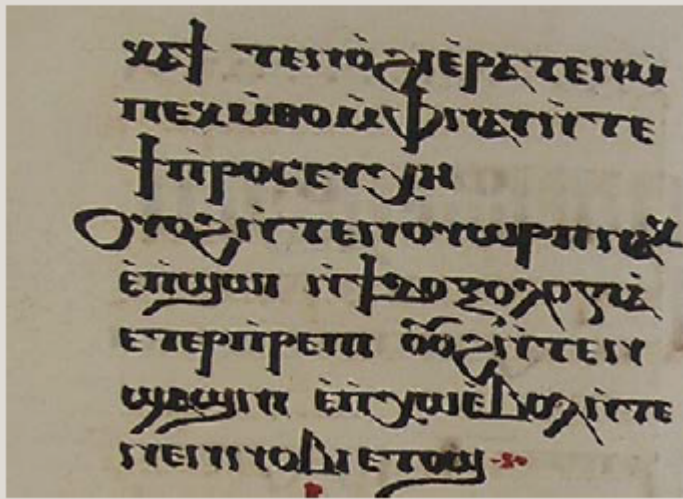 ⲧⲉⲛⲟ̀ϩⲓⲉ̀ⲣⲁⲧⲉⲛⲙ̀
ⲡⲉⲕⲙ̀ⲑⲟⲙ̀ⲫⲛⲁⲩⲛ̀ⲧⲉ
ϯⲡ̀ⲣⲟⲥⲉⲩⲭⲏ
Ⲟⲩⲟϩⲛ̀ⲧⲉⲛⲟⲩⲱⲣⲡⲛⲁⲕ
ⲉ̀ⲡϣⲱⲓ ⲛ̀ϯⲇⲟⲝⲟⲗⲟⲅⲓⲁ̀
ⲉⲧⲉⲣⲡ̀ⲣⲉⲡⲓ ⲟⲩⲟϩⲛ̀ⲧⲉⲛ
ϣⲁϣⲛⲓ ⲉ̀ⲡⲭⲱⲉ̀ⲃⲟⲗⲛ̀ⲧⲉ
ⲛⲉⲛⲛⲟⲃⲓⲉⲧⲟϣ